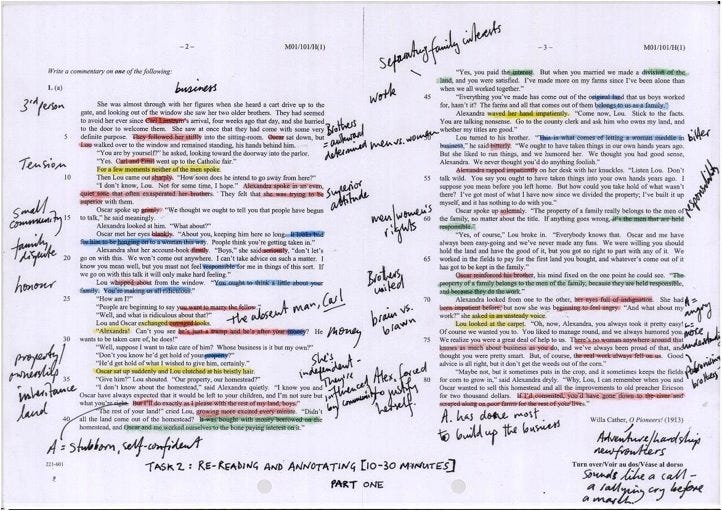 – 2 –
M01/101/H(1)
Write a commentary on one of the following:
1. (a)
business
3rd person
She was among through with her figures when she heard a cart drive up to the
gate, and looking out of the window she saw her two older brothers. They had seemed
to avoid her ever since Carl Linstrum's arrival, four weeks ago that day, and she hurried
to the door to welcome them. She saw at once that they had come with some very
5 definite purpose. They followed her stiffly into the sitting-room. Oscar sat down, but
Lou walked over to the window and remained standing, his hands behind him.
"You are by yourself?" he asked, looking toward the doorway into the parlor.
"Yes. Carl and Emil went up to the Catholic fair."
Tension
For a few moments neither of the men spoke.
10 Then Lou came out sharply. "How soon does he intend to go away from here?"
"I don't know, Lou. Not for some time, I hope." Alexandra spoke in an even,
quiet tone that often exasperated her brothers. They felt that she was trying to be
superior with them.
Oscar spoke up grimly. "We thought we ought to tell you that people have begun
15 to talk," he said meaningly.
Small
community
Alexandra looked at him. "What about?"
Oscar met her eyes blankly. "About you, keeping him here so long. It looks bad
for him to be hanging on to a woman this way. People think you're getting taken in."
family
dispute
Alexandra shut her account-book firmly. "Boys," she said seriously, "don't let's
20 go on with this. We won't come out anywhere. I can't take advice on such a matter. I
know you mean well, but you must not feel responsible for me in things of this sort. If
we go on with this talk it will only make hard feeling."
honour
Lou whipped about from the window. "You ought to think a little about your
family. You're making us all ridiculous."
25 "How am I?"
"People are beginning to say you want to marry the fellow."
"Well, and what is ridiculous about that?"
Lou and Oscar exchanged outraged looks.
"Alexandra! Can't you see he's just a tramp and he's after your money? He
30 wants to be taken care of, he does!"
"Well, suppose I want to take care of him? Whose business is it but my own?"
"Don't you know he'd get hold of your property?"
"He'd get hold of what I wished to give him, certainly."
Oscar sat up suddenly and Lou clutched at his bristly hair.
35 "Give him?" Lou shouted. "Our property, our homestead?"
"I don't know about the homestead," said Alexandra quietly. "I know you and
Oscar have always expected that it would be left to your children, and I'm not sure but
what you're right. But I'll do exactly as I please with the rest of my land, boys."
"The rest of your land!" cried Lou, growing more excited every minute. "Didn't
40 all the land come out of the homestead? It was bought with money borrowed on the
homestead, and Oscar and me worked ourselves to the bone paying interest on it."
property/
ownership
inheritance
land
A = stubborn, self-confident
221-601
Brothers
= authorial
determined
superior
attitude
Brothers
united
the absent man, Carl
money
She's
independent
They're
influenced
by community
Alex. forced
to justify
herself.
TASK 2: RE-READING AND ANNOTATING [10-30 MINUTES]
PART ONE
separating family interests
– 3 –
M01/101/H(1)
work
men vs. women
men/women's
rights
brain vs.
brawn
"Yes, you paid the interest. But when we married we made a division of the
land, and you were satisfied. I've made more on my farms since I've been alone than
when we all worked together."
45 "Everything you've made has come out of the original land that us boys worked
for, hasn't it? The farms and all that comes out of them belongs to us as a family."
Alexandra waved her hand impatiently. "Come now, Lou. Stick to the facts.
You are talking nonsense. Go to the county clerk and ask him who owns my land, and
whether my titles are good."
50 Lou turned to his brother. "This is what comes of letting a woman meddle in
business," he said bitterly. "We ought to have taken things in our own hands years ago.
But she liked to run things, and we humored her. We thought you had good sense,
Alexandra. We never thought you'd do anything foolish."
bitter
Alexandra rapped impatiently on her desk with her knuckles. "Listen Lou. Don't
55 talk wild. You say you ought to have taken things into your own hands years ago. I
suppose you mean before you left home. But how could you take hold of what wasn't
there? I've got most of what I have now since we divided the property; I've built it up
myself, and it has nothing to do with you."
responsibility
Oscar spoke up solemnly. "The property of a family really belongs to the men of
60 the family, no matter about the title. If anything goes wrong, it's the men that are held
responsible."
"Yes, of course," Lou broke in. "Everybody knows that. Oscar and me have
always been easy-going and we've never made any fuss. We were willing you should
hold the land and have the good of it, but you got no right to part with any of it. We
65 worked in the fields to pay for the first land you bought, and whatever's come out of it
has got to be kept in the family."
Oscar reinforced his brother, his mind fixed on the one point he could see. "The
property of a family belongs to the men of the family, because they are held responsible,
and because they do the work."
70 Alexandra looked from one to the other, her eyes full of indignation. She had
been impatient before, but now she was beginning to feel angry. "And what about my
work?" she asked in an unsteady voice.
A =
angry
Lou looked at the carpet. "Oh, now, Alexandra, you always took it pretty easy!
Of course we wanted you to. You liked to manage round, and we always humored you.
75 We realize you were a great deal of help to us. There's no woman anywhere around that
knows as much about business as you do, and we've always been proud of that, and
thought you were pretty smart. But, of course, the real work always fell on us. Good
advice is all right, but it don't get the weeds out of the corn."
"Maybe not, but it sometimes puts in the crop, and it sometimes keeps the fields
80 for corn to grow in," said Alexandra dryly. "Why, Lou, I can remember when you and
Oscar wanted to sell this homestead and all the improvements to old preacher Ericson
for two thousand dollars. If I'd consented, you'd have gone down to the river and
scraped along on poor farms for the rest of your lives."
brothers
A. has done most
to build up the business
Willa Cather, O Pioneers! (1913)
Adventure/hardship
new frontiers
Turn over/Voir au dos/Véase al dorso
sounds like a call –
a rallying cry before
a march.